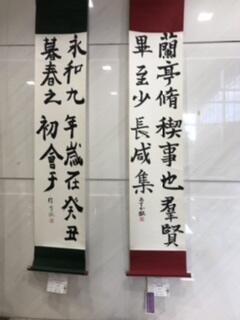 永和九年歲在癸丑
暮春之初會于
蘭亭脩稧事也羣賢
畢至少長咸集